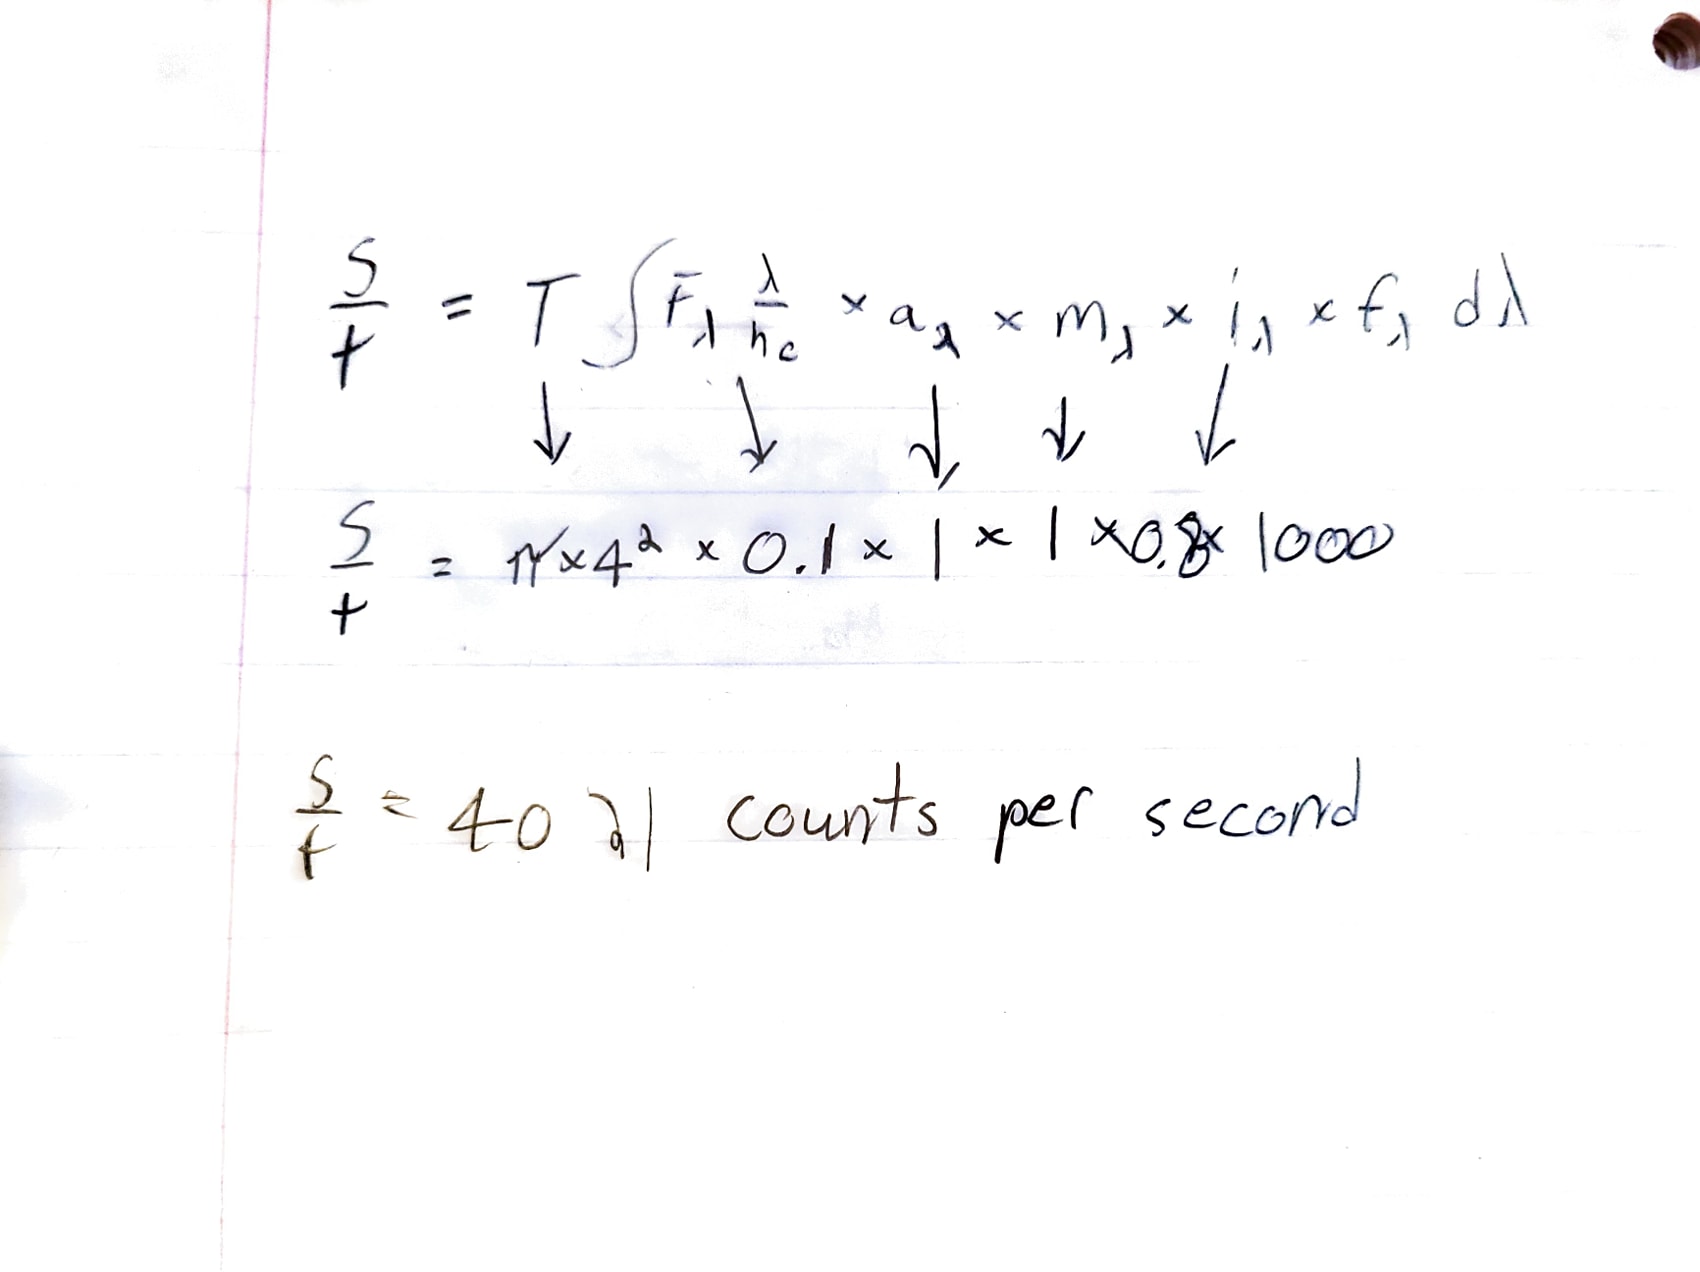 S/t = T ∫ F_λ λ/hc × a_λ × m_λ × i_λ × f_λ dλ
↓ ↓ ↓ ↓ ↓
S/t = π×4² × 0.1 × 1 × 1 ×0.8× 1000
S/t = 4021 counts per second